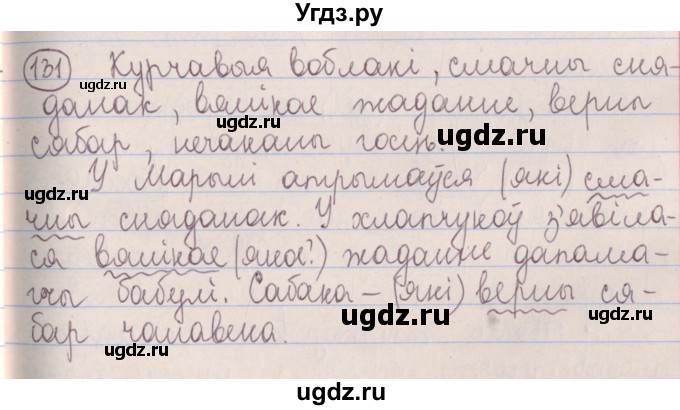 Угдз.ру
131 Курчавыя воблакі, смачны сня-
данак, вялікае жаданне, верны
сябар, нечаканы госць.
У Марылі атрымаўся (які) сма-
чны сняданак. У хлапчукоў з'явіла-
ся вялікае (якое?) жаданне дапама-
гчы бабулі. Сабака – (які) верны ся-
бар чалавека.
ugdz.ru
ugdz.ru
ugdz.ru
ugdz.ru
ugdz.ru
ugdz.ru
ugdz.ru
ugdz.ru
ugdz.ru
ugdz.ru